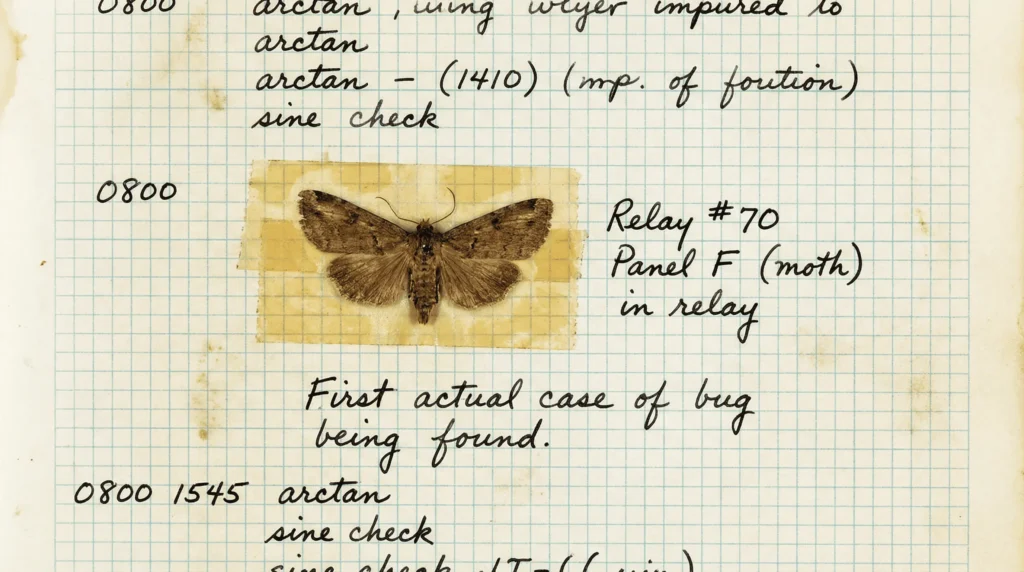 0800 arctan
arctan
arctan - (1410) (mp. of foution)
sine check
0800
Relay #70
Panel F (moth)
in relay
First actual case of bug
being found.
0800 1545 arctan
sine check
sine check